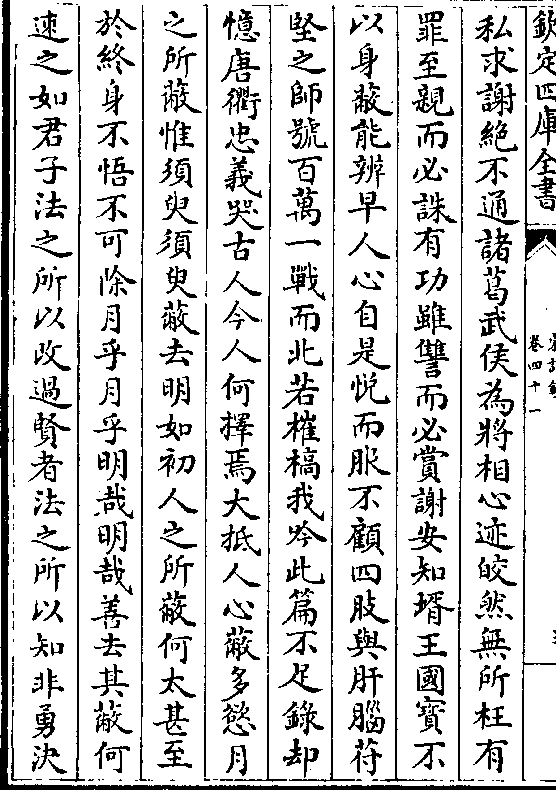 欽定四庫全書
卷四十一
私求謝絶不通諸葛武侯為將相心迹皎然無所枉有
罪至親而必誅有功雖讐而必賞謝安知壻王國寳不
以身蔽能辨早人心自是悦而服不顧四肢與肝腦苻
堅之師號百萬一戰而北若摧槁我吟此篇不足錄却
憶唐衢忠義哭古人今人何擇焉大抵人心蔽多慾月
之所蔽惟須臾須臾蔽去明如初人之所蔽何太甚至
於終身不悟不可除月乎月乎明哉明哉善去其蔽何
速之如君子法之所以改過賢者法之所以知非勇決